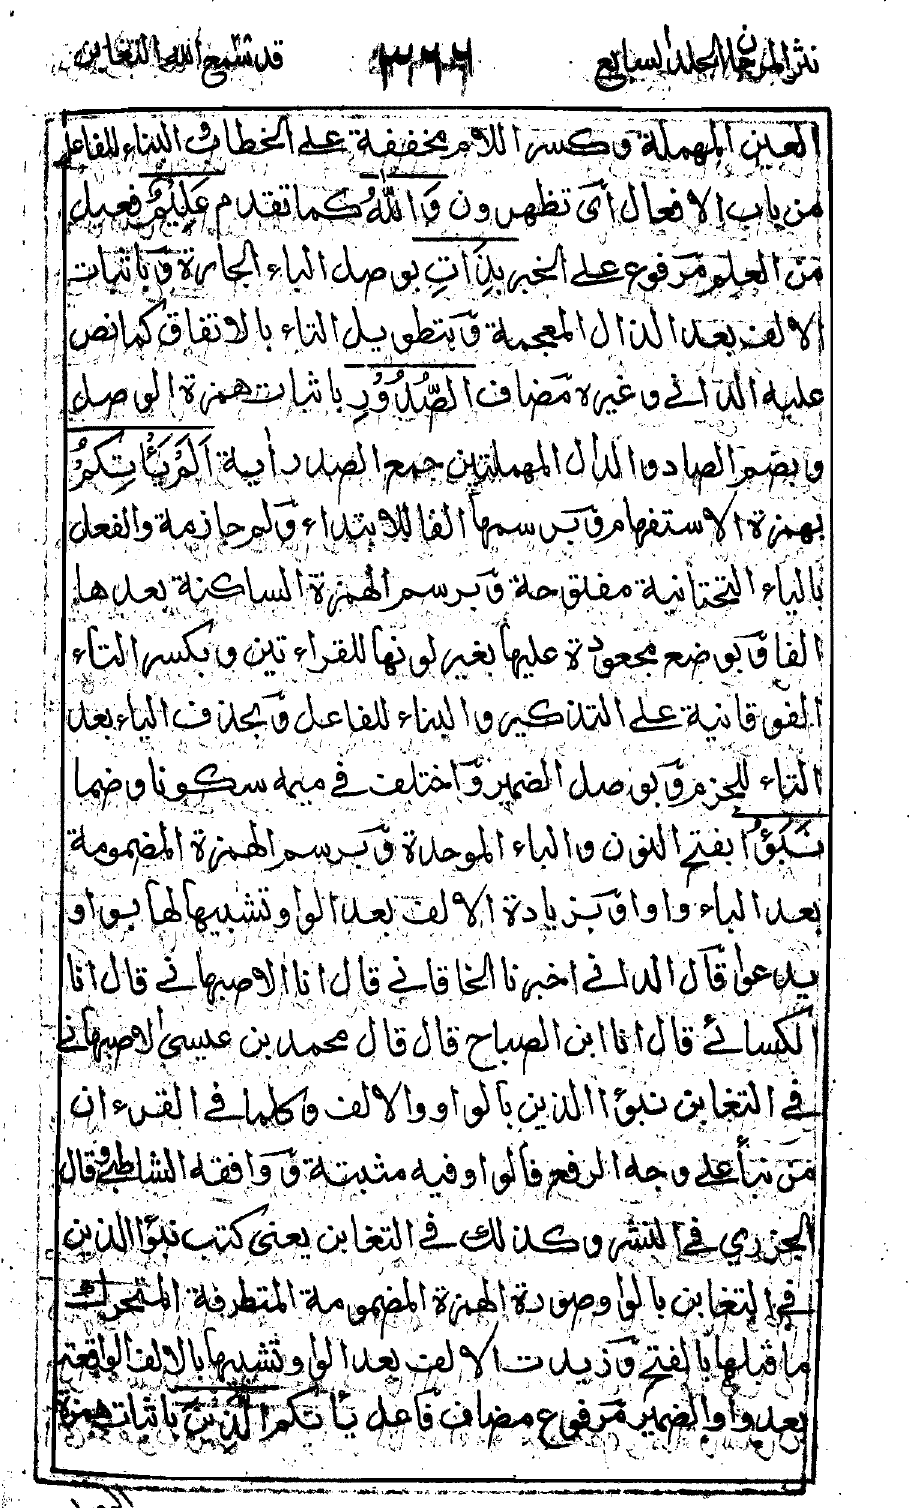 نثر المرجان الجلد السابع ٣٢٢ قد سمع الله التغابن
العين المهملة وكسر اللام مخففة على الخطاب والبناء للفاعل
من باب الافعال اى تظهرون وَاللّٰهُ كما تقدم عَلِيْمٌ فعيل
من العلم مرفوع على الخبر بِذَاتِ بوصل الباء الجارة وباثبات
الالف بعد الذال المعجمة وبتطويل التاء بالاتفاق كما نص
عليه الدانى وغيره مضاف الصُّدُوْرِ باثبات همزة الوصل
وبضم الصاد والدال المهملتين جمع الصدر اية اَلَمْ يَأْتِكُمْ
بهمزة الاستفهام وبرسمها الفا للابتداء ولم جازمة والفعل
بالياء التحتانية مفتوحة وبرسم الهمزة الساكنة بعدها
الفا وبوضع مجعودة عليها بغير لونها للقراءتين وبكسر التاء
الفوقانية على التذكير والبناء للفاعل وبحذف الياء بعد
التاء للجزم وبوصل الضمير واختلف فى ميمه سكونا وضما
نَبَؤُا بفتح النون والباء الموحدة وبرسم الهمزة المضمومة
بعد الباء واوا وبزيادة الالف بعد الواو تشبيها لها بواو
يدعوا قال الدانى اخبرنا الخاقانى قال انا الاصبهانى قال انا
الكسائى قال انا ابن الصباح قال قال محمد بن عيسى الاصبهانى
فى التغابن نبؤا الذين بالواو والالف وكلما فى القرءان
من نبأ على وجه الرفع فالواو فيه مثبتة ووافقه الشاطبى وقال
الجزري فى النشر وكذلك فى التغابن يعنى كتب نبؤا الذين
فى التغابن بالواو صورة الهمزة المضمومة المتطرفة المتحرك
ما قبلها بالفتح وزيدت الالف بعد الواو تشبيها بالالف الواقعة
بعد واو الضمير مرفوع مضاف فاعل يأتكم الَّذِيْنَ باثبات همزة